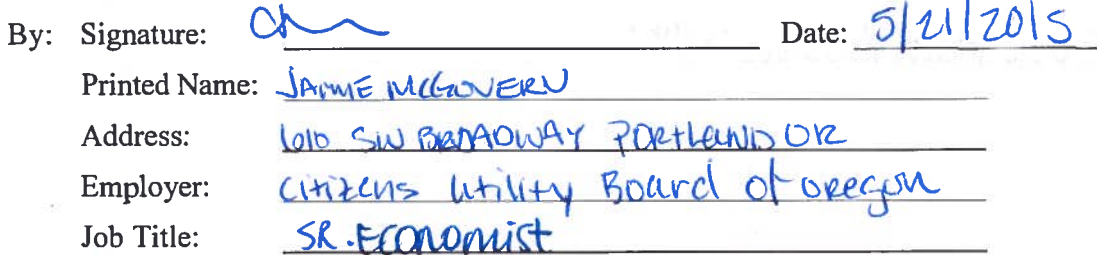 By: Signature: Date: 5/21/2015
Printed Name: JAIME MCGOVERN
Address: 610 SW BROADWAY PORTLAND OR
Employer: Citizens Utility Board of oregon
Job Title: SR. Economist